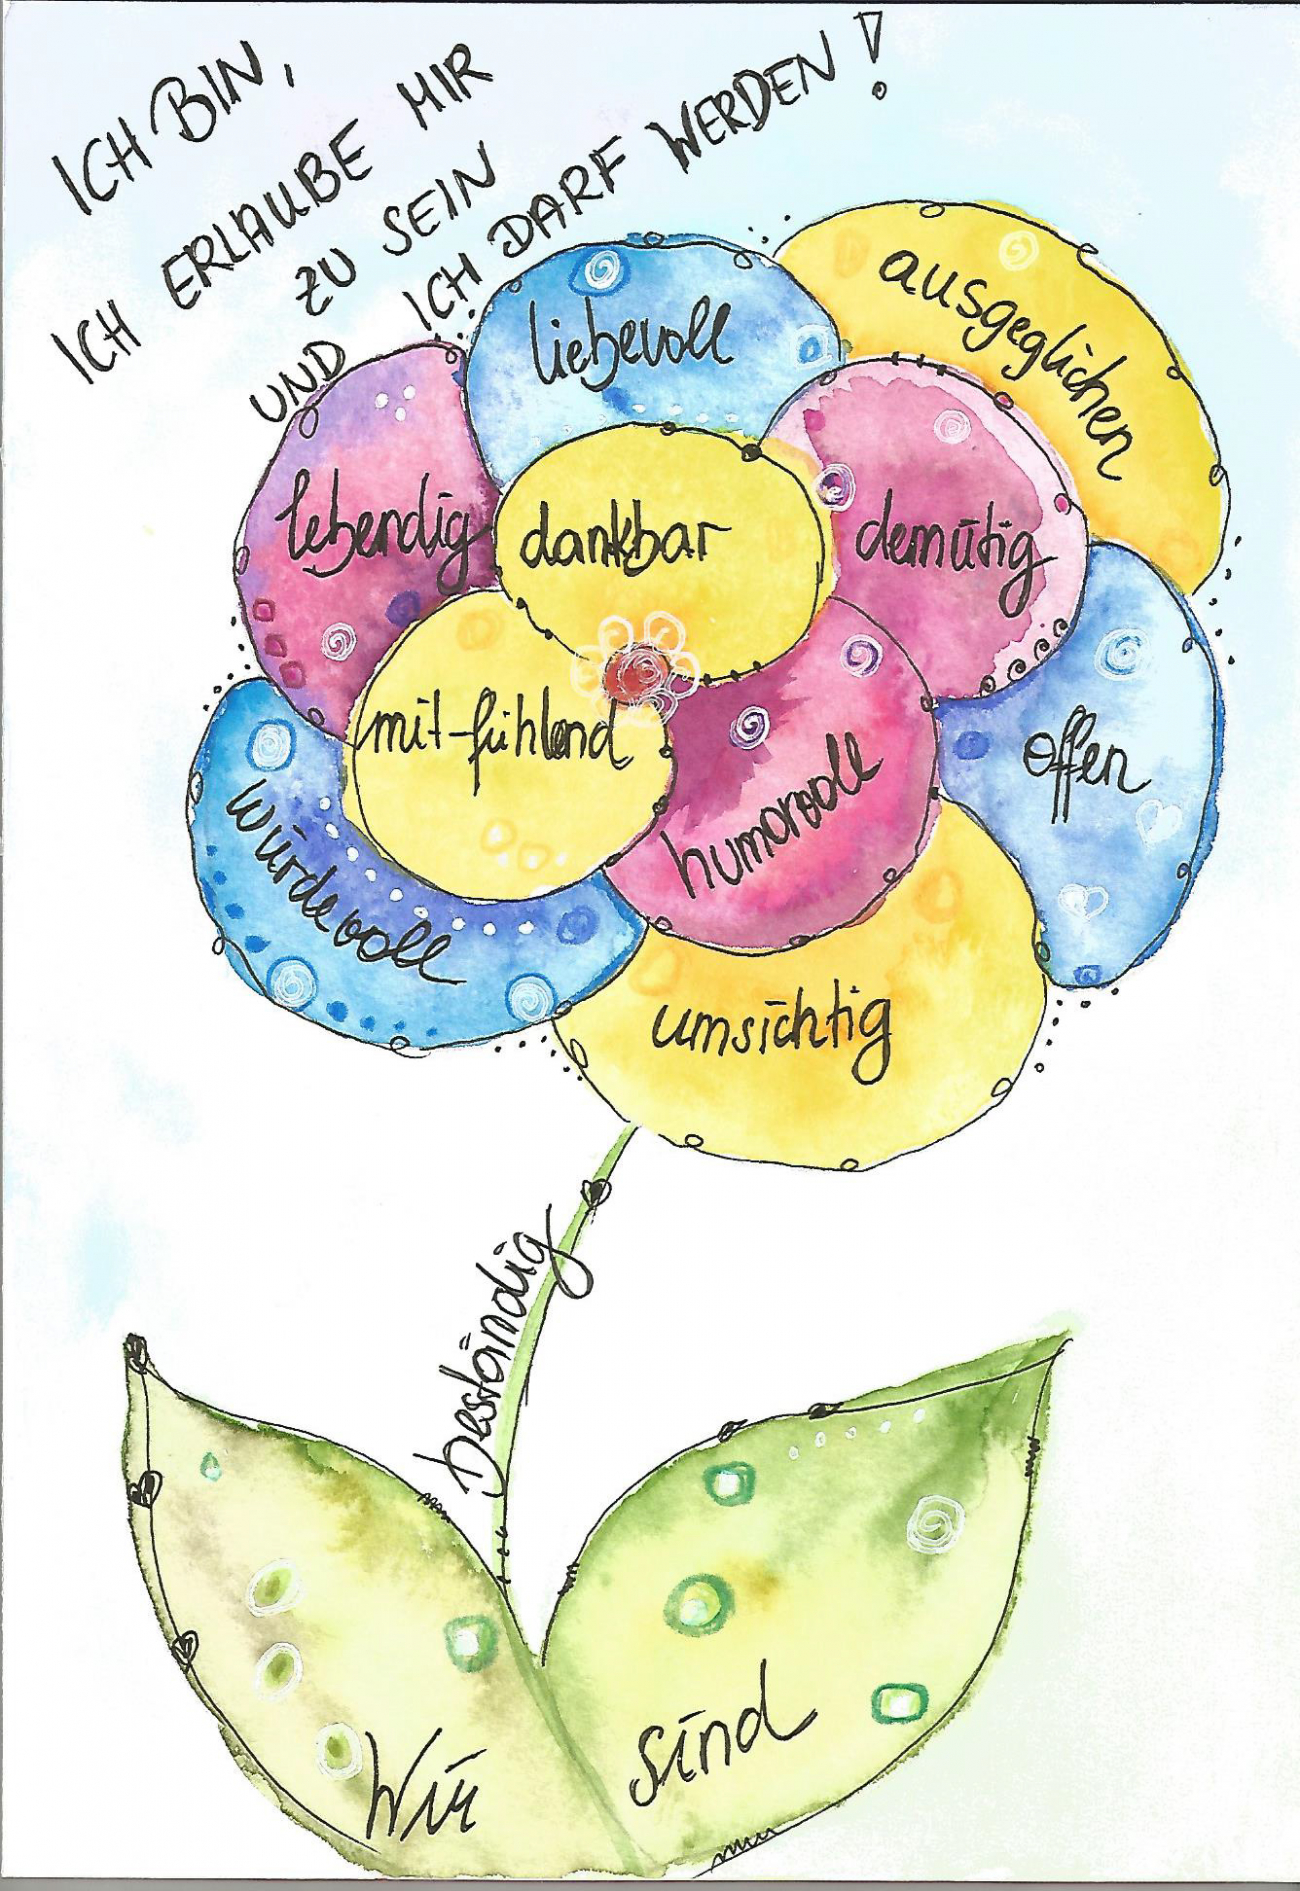 ICH BIN,
ICH ERLAUBE MIR
ZU SEIN
UND ICH DARF WERDEN!
liebevoll
ausgeglichen
lebendig
dankbar
demütig
mit-fühlend
humorvoll
offen
würdevoll
umsichtig
beständig
Wir
sind